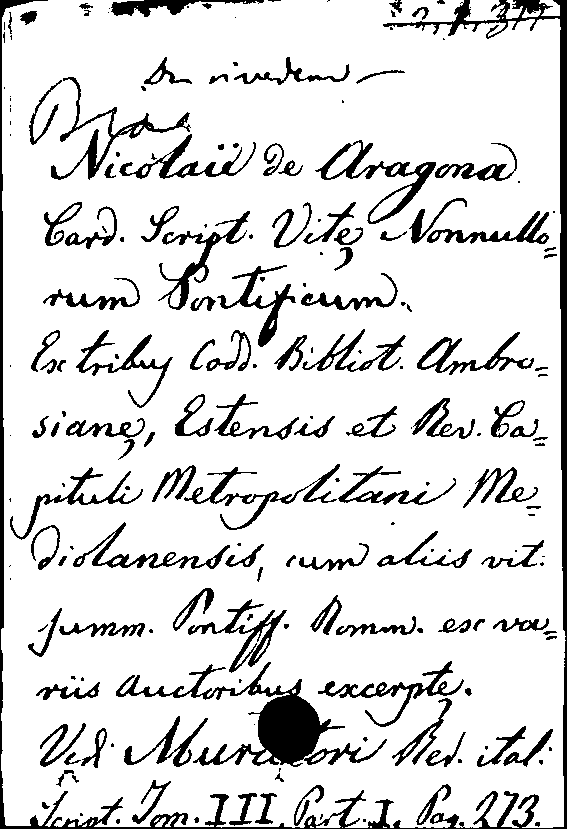 Da rivedere —
Nicolaii de Aragona
Card. Script. Vitę Nonnullo=
rum Pontificum.
Ex tribus Codd. Bibliot. Ambro=
sianę, Estensis et Rev. Ca=
pituli Metropolitani Me=
diolanensis, cum aliis vit.
summ. Pontiff. Romm. ex va=
riis auctoribus excerptę.
Ved. Muratori Rer. ital.
Script. Tom. III. Part. I. Pag. 273.